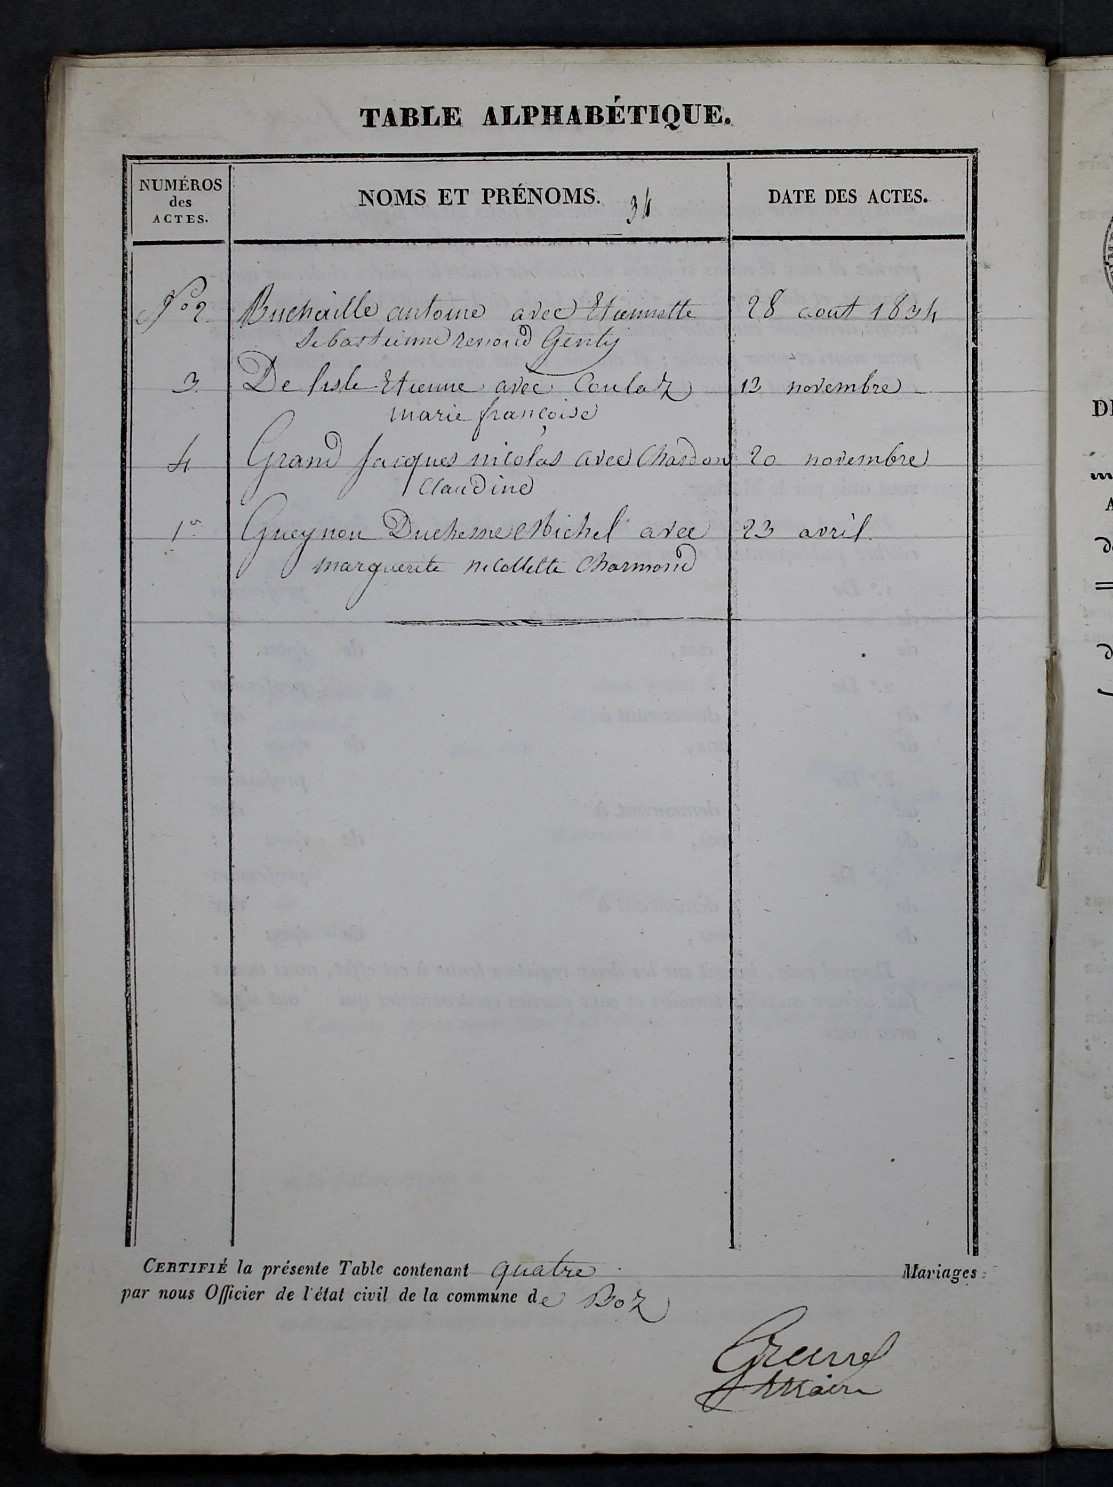 TABLE ALPHABÉTIQUE.
NUMÉROS
des
ACTES.
NOMS ET PRÉNOMS. 34
DATE DES ACTES.
N° 2 antoine avec Etiennette 28 aout 1834
Sebastienne renoud Genty
3 De lisle Etienne avec Coulaz 13 novembre
marie françoise
4 Grand Jacques nicolas avec Chardon 20 novembre
Claudine
1er Gueynon Duchesne Michel avec 23 avril
marguerite nicollette Charmond
CERTIFIÉ la présente Table contenant quatre Mariages
par nous Officier de l'état civil de la commune de Boz
Maire